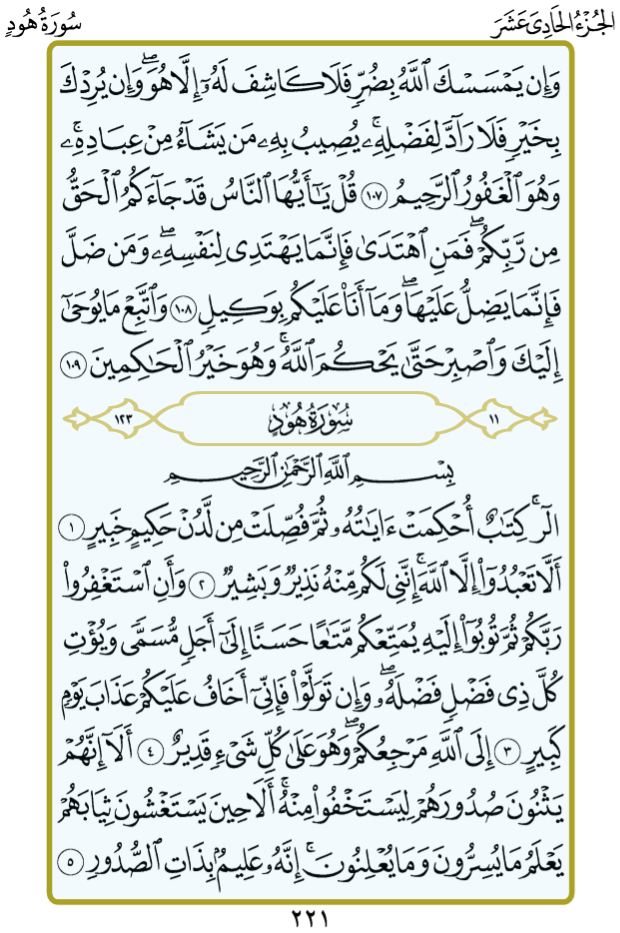 الجُزْءُ الحَادِىَ عَشَرَ
سُورَةُ هُودٍ
وَإِن يَمْسَسْكَ ٱللَّهُ بِضُرٍّ فَلَا كَاشِفَ لَهُۥٓ إِلَّا هُوَۖ وَإِن يُرِدْكَ
بِخَيْرٍ فَلَا رَآدَّ لِفَضْلِهِۦۚ يُصِيبُ بِهِۦ مَن يَشَآءُ مِنْ عِبَادِهِۦۚ
وَهُوَ ٱلْغَفُورُ ٱلرَّحِيمُ ١٠٧ قُلْ يَـٰٓأَيُّهَا ٱلنَّاسُ قَدْ جَآءَكُمُ ٱلْحَقُّ
مِن رَّبِّكُمْۖ فَمَنِ ٱهْتَدَىٰ فَإِنَّمَا يَهْتَدِى لِنَفْسِهِۦۖ وَمَن ضَلَّ
فَإِنَّمَا يَضِلُّ عَلَيْهَاۖ وَمَآ أَنَا۠ عَلَيْكُم بِوَكِيلٍ ١٠٨ وَٱتَّبِعْ مَا يُوحَىٰٓ
إِلَيْكَ وَٱصْبِرْ حَتَّىٰ يَحْكُمَ ٱللَّهُۚ وَهُوَ خَيْرُ ٱلْحَـٰكِمِينَ ١٠٩
١١ سُورَةُ هُودٍ ١٢٣
بِسْمِ ٱللَّهِ ٱلرَّحْمَـٰنِ ٱلرَّحِيمِ
الٓرۚ كِتَـٰبٌ أُحْكِمَتْ ءَايَـٰتُهُۥ ثُمَّ فُصِّلَتْ مِن لَّدُنْ حَكِيمٍ خَبِيرٍ ١
أَلَّا تَعْبُدُوٓا۟ إِلَّا ٱللَّهَۚ إِنَّنِى لَكُم مِّنْهُ نَذِيرٌ وَبَشِيرٌ ٢ وَأَنِ ٱسْتَغْفِرُوا۟
رَبَّكُمْ ثُمَّ تُوبُوٓا۟ إِلَيْهِ يُمَتِّعْكُم مَّتَـٰعًا حَسَنًا إِلَىٰٓ أَجَلٍ مُّسَمًّى وَيُؤْتِ
كُلَّ ذِى فَضْلٍ فَضْلَهُۥۖ وَإِن تَوَلَّوْا۟ فَإِنِّىٓ أَخَافُ عَلَيْكُمْ عَذَابَ يَوْمٍ
كَبِيرٍ ٣ إِلَى ٱللَّهِ مَرْجِعُكُمْۖ وَهُوَ عَلَىٰ كُلِّ شَىْءٍ قَدِيرٌ ٤ أَلَآ إِنَّهُمْ
يَثْنُونَ صُدُورَهُمْ لِيَسْتَخْفُوا۟ مِنْهُۚ أَلَا حِينَ يَسْتَغْشُونَ ثِيَابَهُمْ
يَعْلَمُ مَا يُسِرُّونَ وَمَا يُعْلِنُونَۚ إِنَّهُۥ عَلِيمٌۢ بِذَاتِ ٱلصُّدُورِ ٥
٢٢١